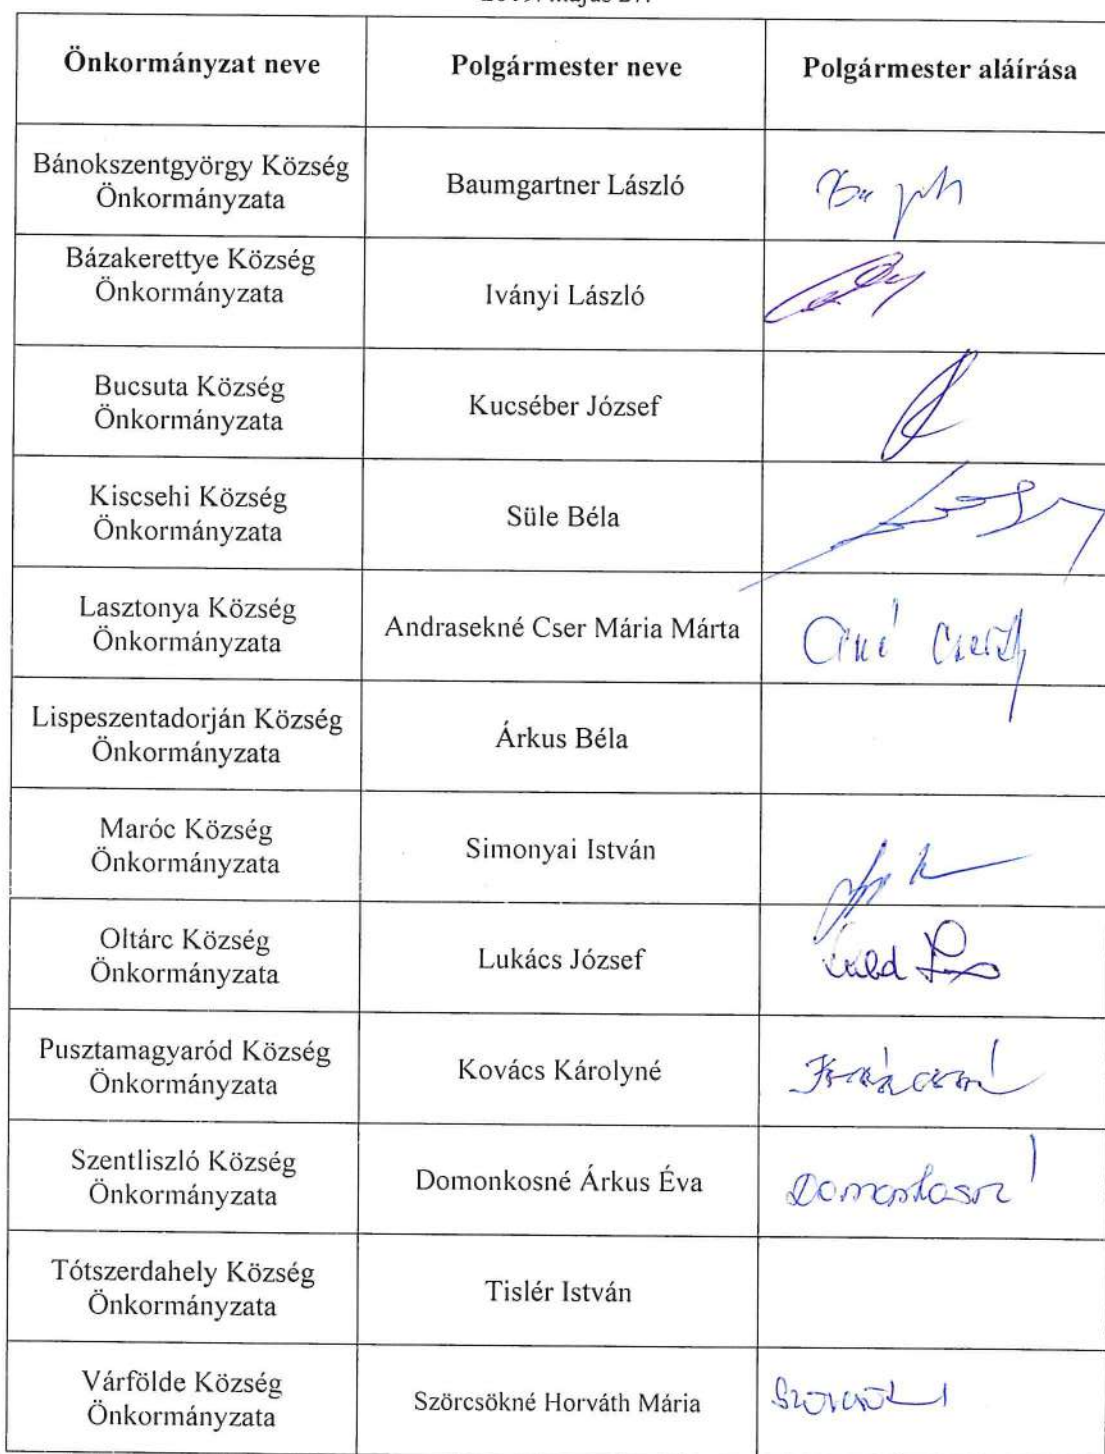 Önkormányzat neve
Polgármester neve
Polgármester aláírása
Bánokszentgyörgy Község
Önkormányzata
Baumgartner László
Bázakerettye Község
Önkormányzata
Iványi László
Bucsuta Község
Önkormányzata
Kucséber József
Kiscsehi Község
Önkormányzata
Süle Béla
Lasztonya Község
Önkormányzata
Andrasekné Cser Mária Márta
Lispeszentadorján Község
Önkormányzata
Árkus Béla
Maróc Község
Önkormányzata
Simonyai István
Oltárc Község
Önkormányzata
Lukács József
Pusztamagyaród Község
Önkormányzata
Kovács Károlyné
Szentliszló Község
Önkormányzata
Domonkosné Árkus Éva
Tótszerdahely Község
Önkormányzata
Tislér István
Várfölde Község
Önkormányzata
Szörcsökné Horváth Mária